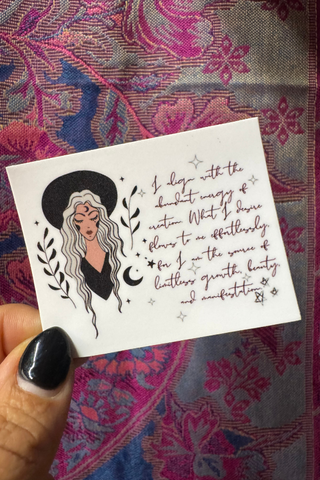 I align with the
abundant energy of
creation. What I desire
flows to me effortlessly
for I am the source of
limitless growth, beauty
and manifestation.